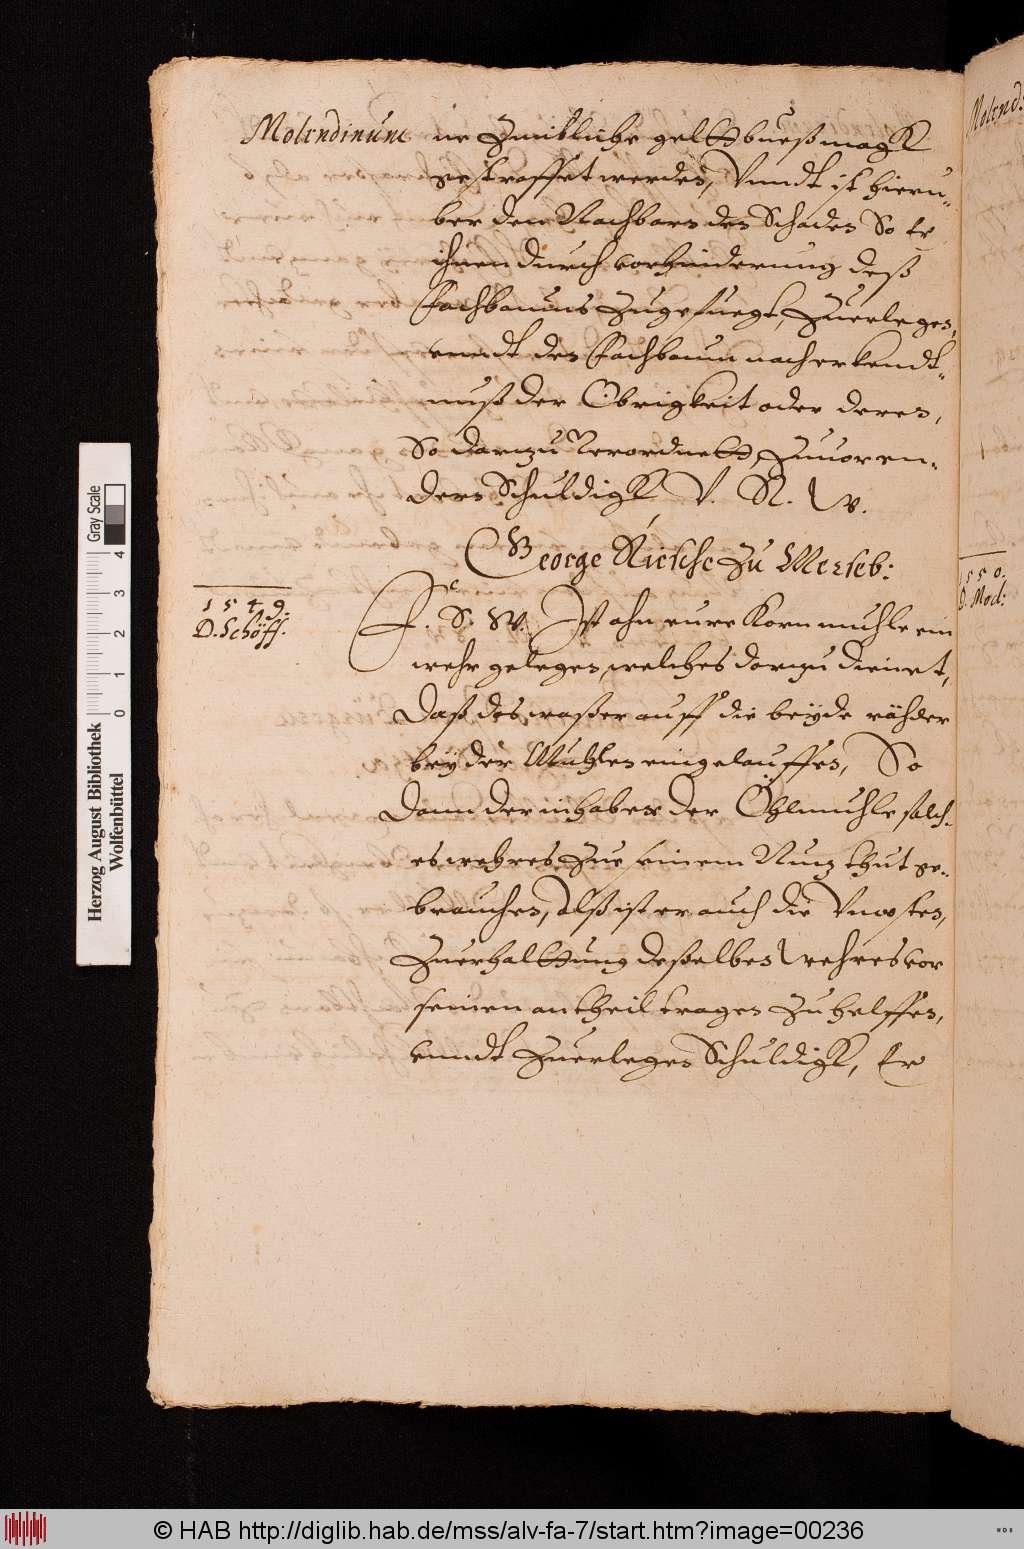 Molendinum
ne Zimbliche geldtbueß magk
gestraffet werden, Vnndt ist hieru-
ber den Nachbarn den Schaden So er
ihnen durch vorhinderung deß
Fachbaums Zugefuegt, Zuerlegen,
vnndt den Fachbaum nach erkendt-
nuß der Obrigkeit oder deren,
So darzu Verordnett, Zuuoren-
dern Schuldigk V. R. W.
George Rirsche Zu Merseb:
1549.
D. Schöff.
J. S. W. Ist ahn eure Korn muhle ein
wehr gelegen, welches darzu dienet,
Daß das waßer auff die beyde rähder
bey der Muhlen eingelauffen, So
Dann der inhaber der Öhlmuhle solch-
es wehres Zue seinem Nuz thut ge-
brauchen, Alß ist er auch die Vncosten,
Zuerhalttung deßelben Wehres vor
seinen antheil tragen Zu helffen,
vnndt Zuerlegen Schuldigk, Er
Molend:
1550.
D. Mod:
Herzog August Bibliothek
Wolfenbüttel
Gray Scale
0 1 2 3 4
© HAB http://diglib.hab.de/mss/alv-fa-7/start.htm?image=00236